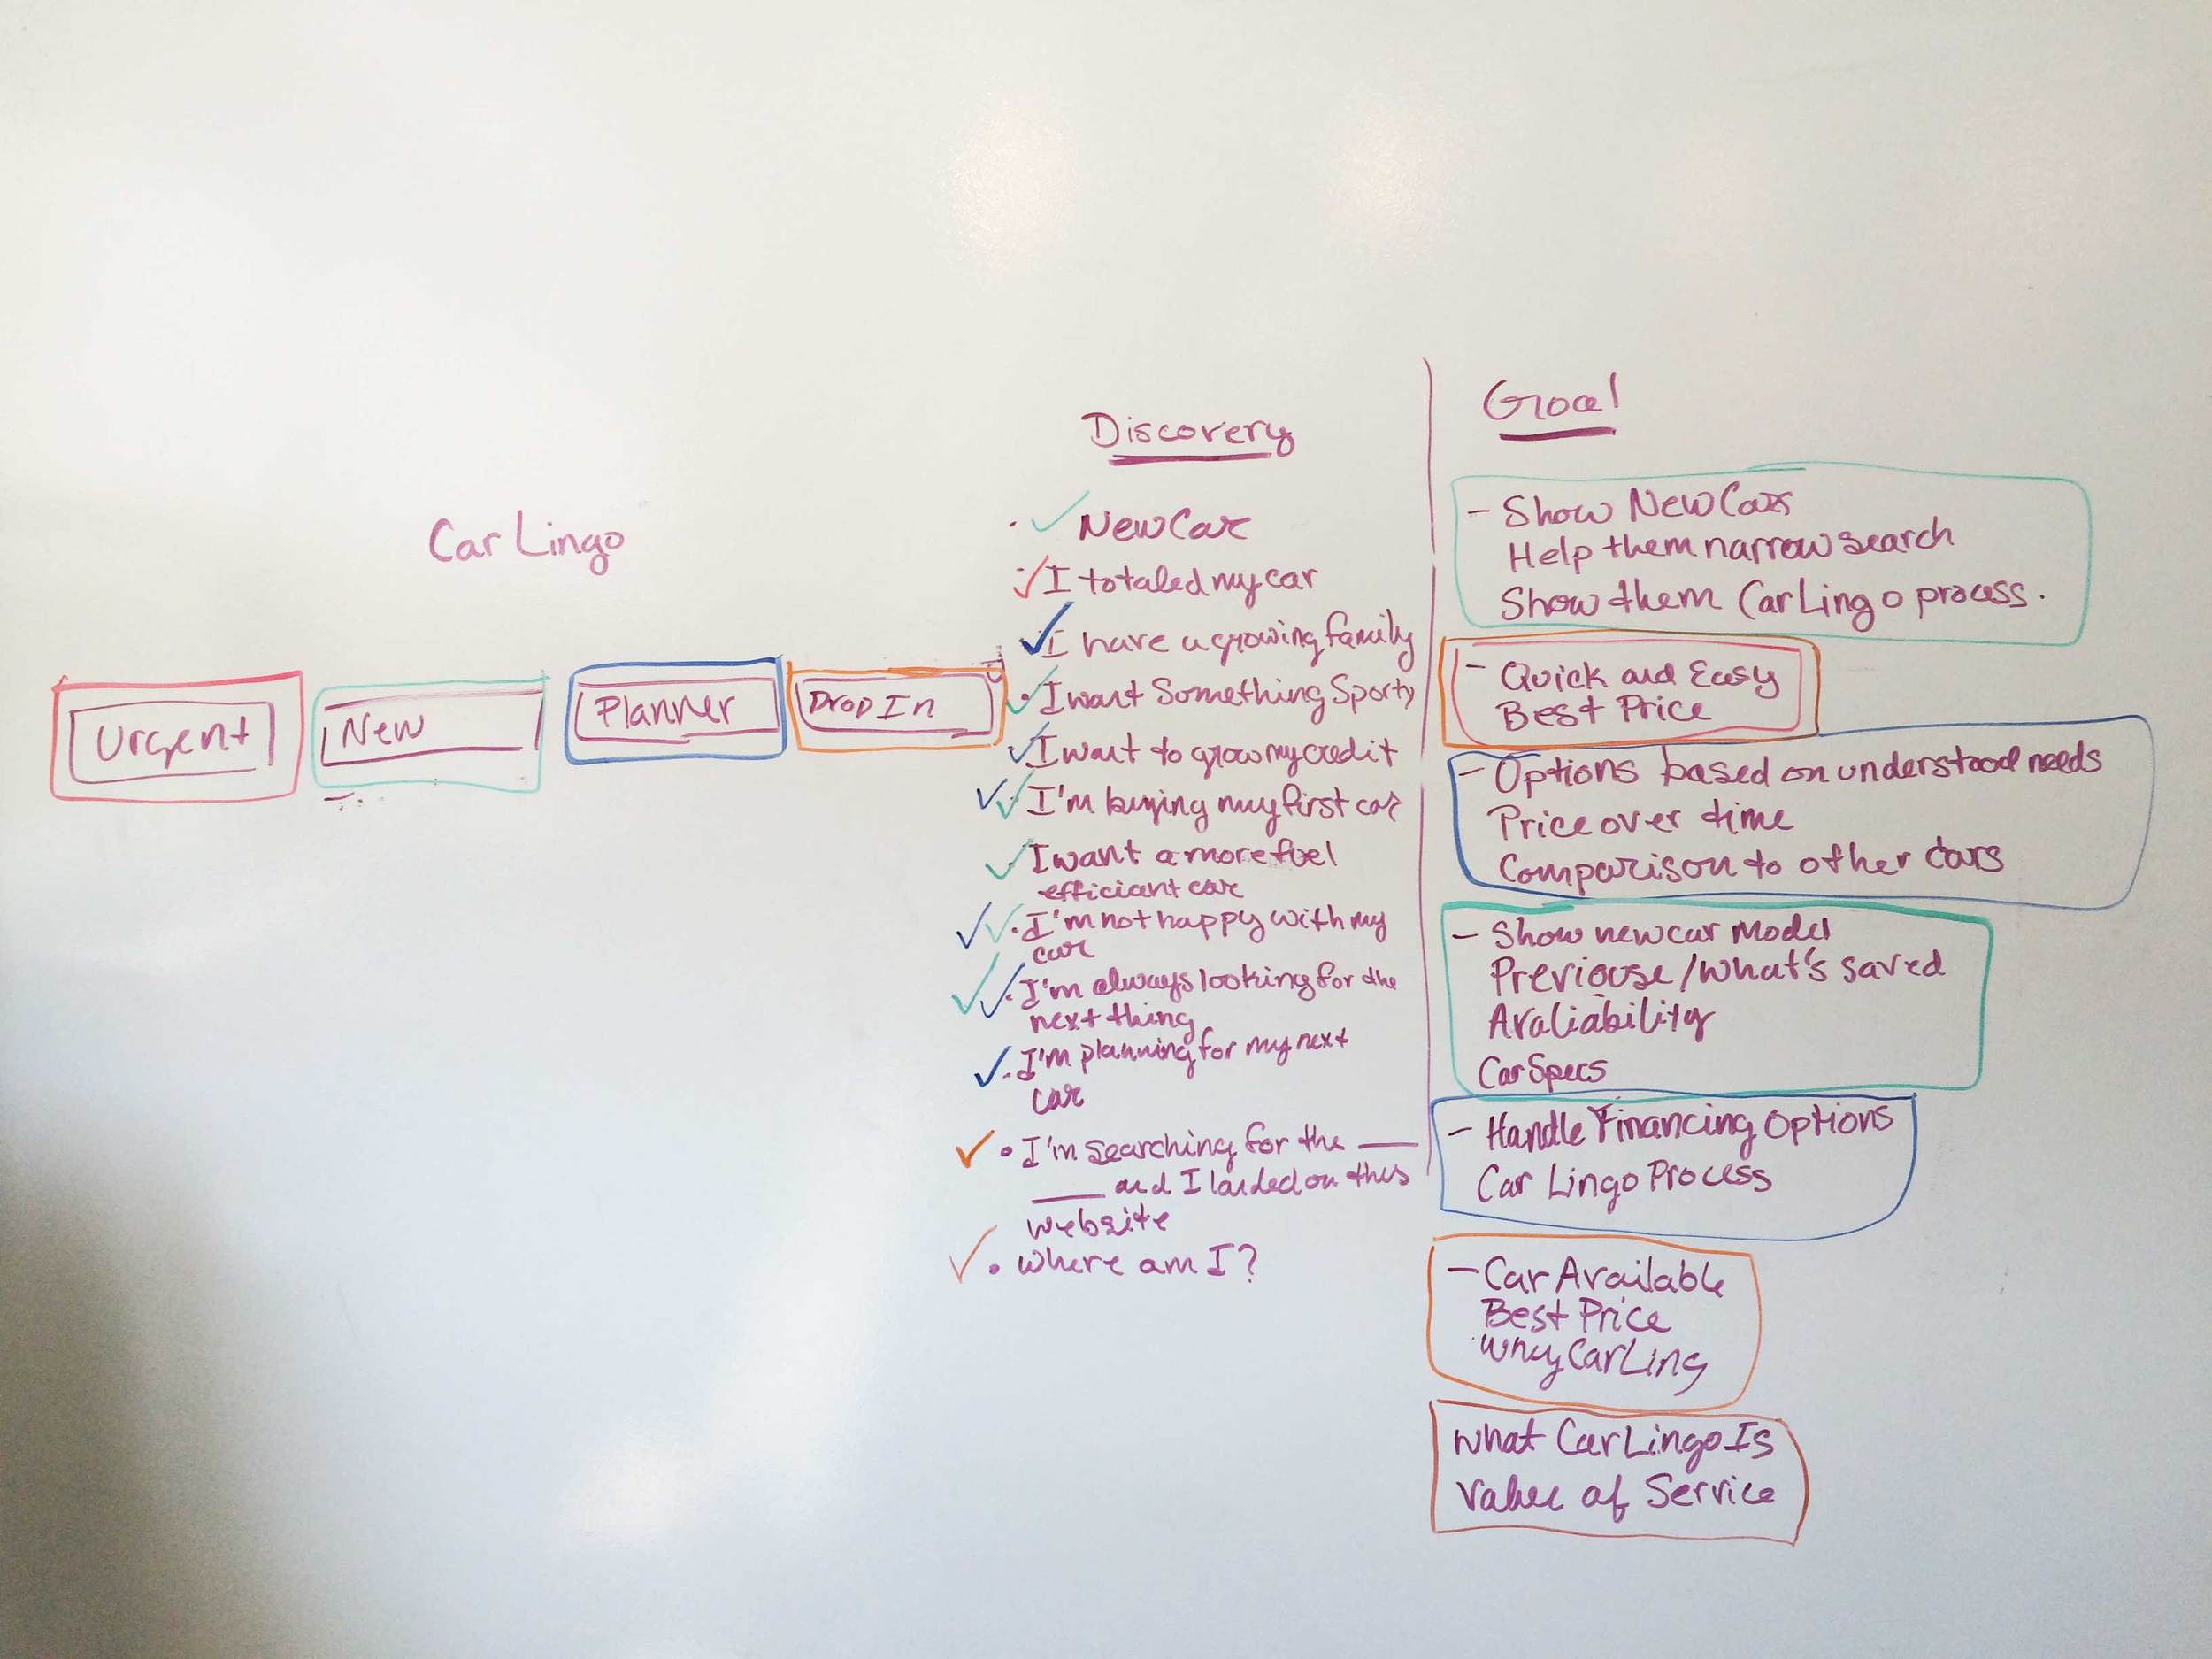 Car Lingo
Urgent
New
Planner
Drop In
Discovery
New Car
I totaled my car
I have a growing family
I want Something Sporty
I want to grow my credit
I'm buying my first car
I want a more fuel
efficiant car
I'm not happy with my
car
I'm always looking for the
next thing
I'm planning for my next
car
I'm searching for the ____
____ and I landed on this
website
Where am I?
Goal
- Show New Cars
Help them narrow search
Show them CarLingo process.
- Quick and Easy
Best Price
- Options based on understood needs
Price over time
Comparison to other cars
- Show new car model
Previouse/what's saved
Avaliability
Car Specs
- Handle Financing Options
Car Lingo Process
- Car Available
Best Price
Why CarLing
What CarLingo Is
Value of Service